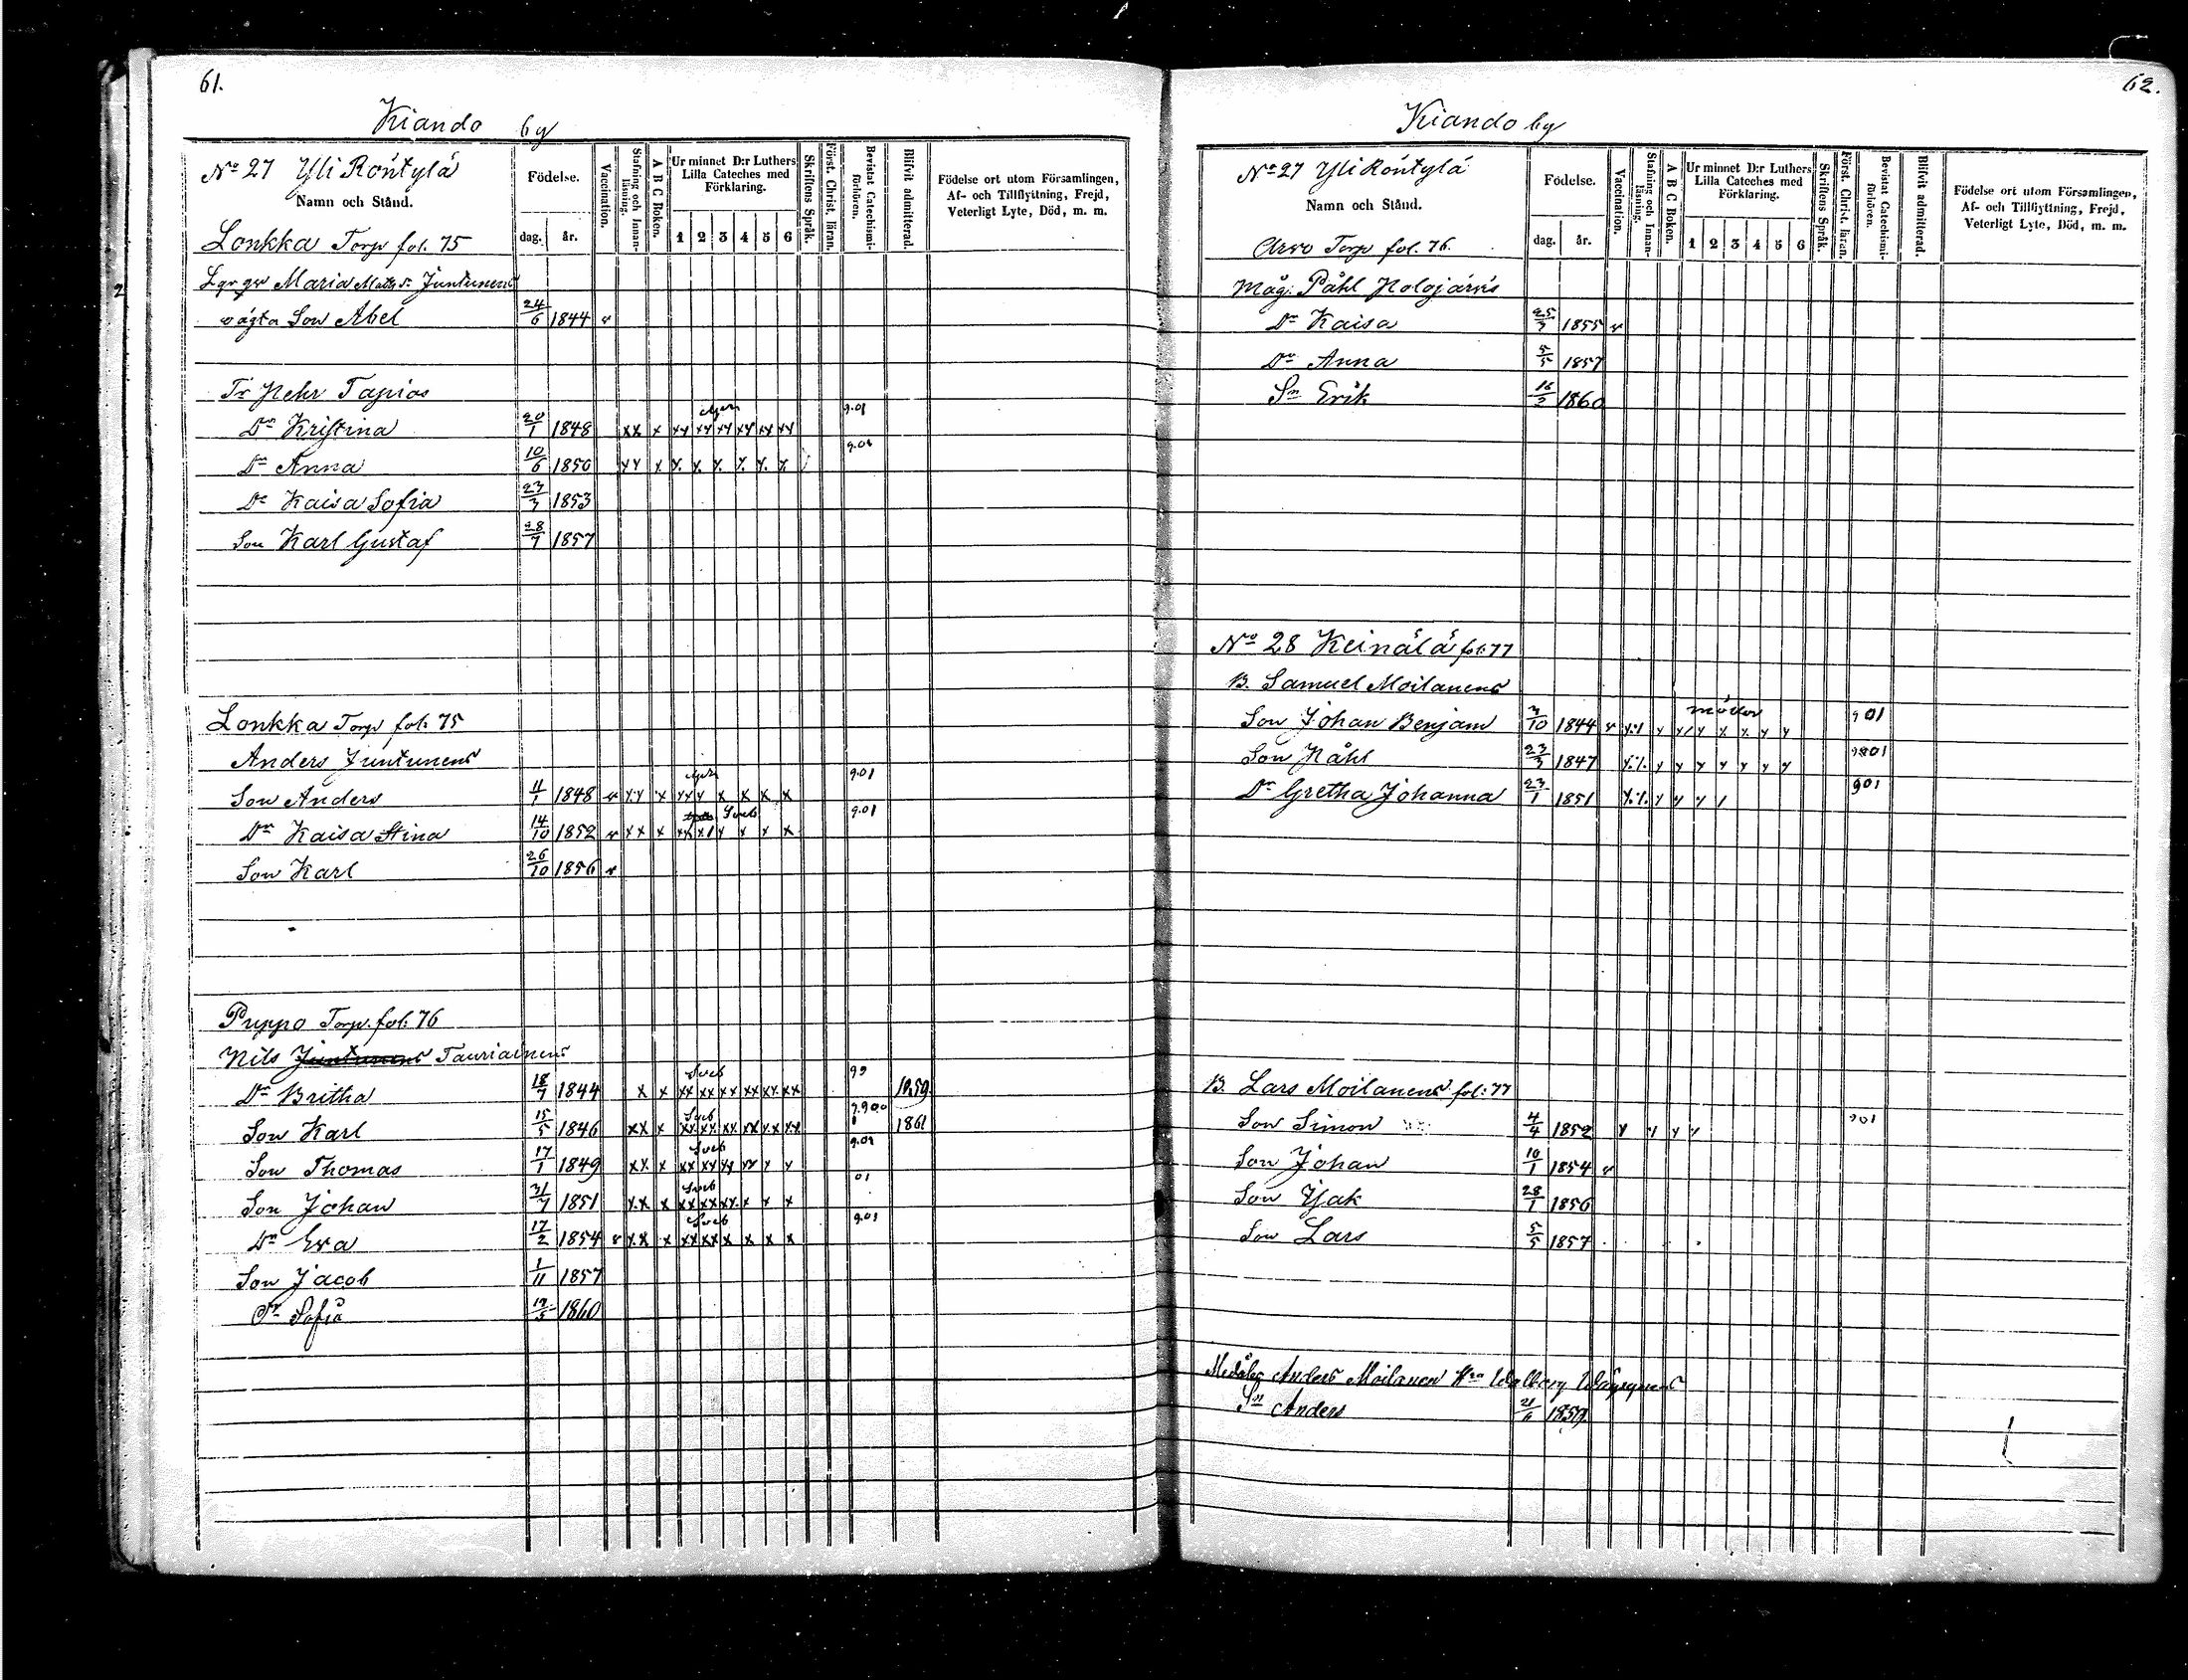 61.
Kiando by
No 27 Yli Röntylä
Namn och Stånd.
Födelse.
dag. år.
Vaccination.
Stafning och Innan-läsning.
A B C Boken.
Ur minnet D:r Luthers Lilla Cateches med Förklaring.
1 2 3 4 5 6
Skriftens Språk.
Först. Christ. läran.
Bevistat Catechismi-förhören.
Blifvit admitterad.
Födelse ort utom Församlingen, Af- och Tillflyttning, Frejd, Veterligt Lyte, Död, m. m.
Lonkka Torp fol. 75
Maria Matts dr Juntunens
oägta Son Abel 24/6 1844 v
Tapias
Dr Kristina 20/1 1848 xx x xx xx xx xx xx xx 9.01
Dr Anna 10/6 1850 xx x x. x. x. x. x. x. 9.01
Dr Kaisa Sofia 23/3 1853
Son Karl Gustaf 28/7 1857
Lonkka Torp fol: 75
Anders Juntunens
Son Anders 11/1 1848 v xx x xx x x x x x 9.01
Dr Kaisa Stina 14/10 1852 v xx x xx x x x x x 9.01
Son Karl 26/10 1856 v
Puppo Torp. fol: 76
Nils Juntunens Tauriainens
Dr Britha 18/7 1844 x x xx xx xx xx xx xx 99 1859
Son Karl 15/5 1846 xx x xx xx xx xx xx xx 1861
Son Thomas 17/1 1849 xx x xx xx xx xx x x 9.01
Son Johan 31/7 1851 xx x xx xx xx. x x x 01
Dr Eva 17/2 1854 v xx x xx xx x x x x 9.01
Son Jacob 1/11 1857
Dr Sofia 1860
62.
Kiando by
No 27 Yli Röntylä
Namn och Stånd.
Födelse.
dag. år.
Vaccination.
Stafning och Innan-läsning.
A B C Boken.
Ur minnet D:r Luthers Lilla Cateches med Förklaring.
1 2 3 4 5 6
Skriftens Språk.
Först. Christ. läran.
Bevistat Catechismi-förhören.
Blifvit admitterad.
Födelse ort utom Församlingen, Af- och Tillflyttning, Frejd, Veterligt Lyte, Död, m. m.
Arvo Torp fol. 76.
Måg: Påhl Holojärvis
Dr Kaisa 25/3 1855 v
Dr Anna 5/5 1857
Sn Erik 16/2 1860
No 28 Keinälä fol: 77
B. Samuel Moilanens
Son Johan Benjam 3/10 1844 v 901
Son Påhl 23/3 1847
Dr Gretha Johanna 23/1 1851 901
B. Lars Moilanens fol: 77
Son Simon 4/4 1852 901
Son Johan 10/1 1854 v
Son Isak 28/1 1856
Son Lars 5/5 1857
Anders Moilanen Hu Walborg
Sn Anders 21/6 1859